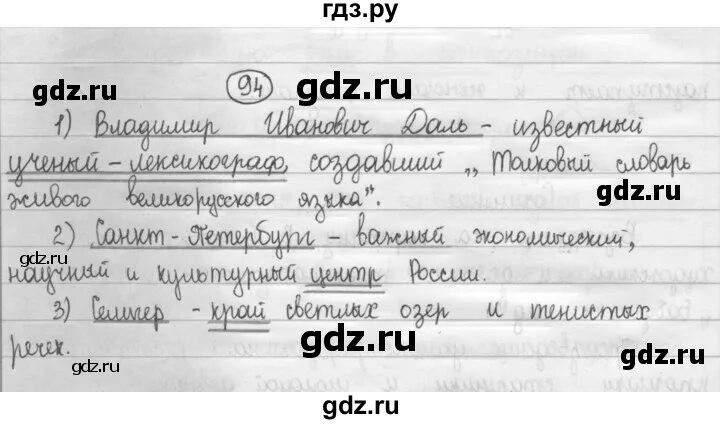 гдз.ру
gdz.ru
94
gdz.ru
1) Владимир Иванович Даль - известный
ученый - лексикограф, создавший „Толковый словарь
живого великорусского языка".
gdz.ru
gdz.ru
2) Санкт-Петербург - важный экономический,
научный и культурный центр России.
gdz.ru
gdz.ru
3) Селигер - край светлых озер и тенистых
речек.
gdz.ru
gdz.ru
gdz.ru
gdz.ru